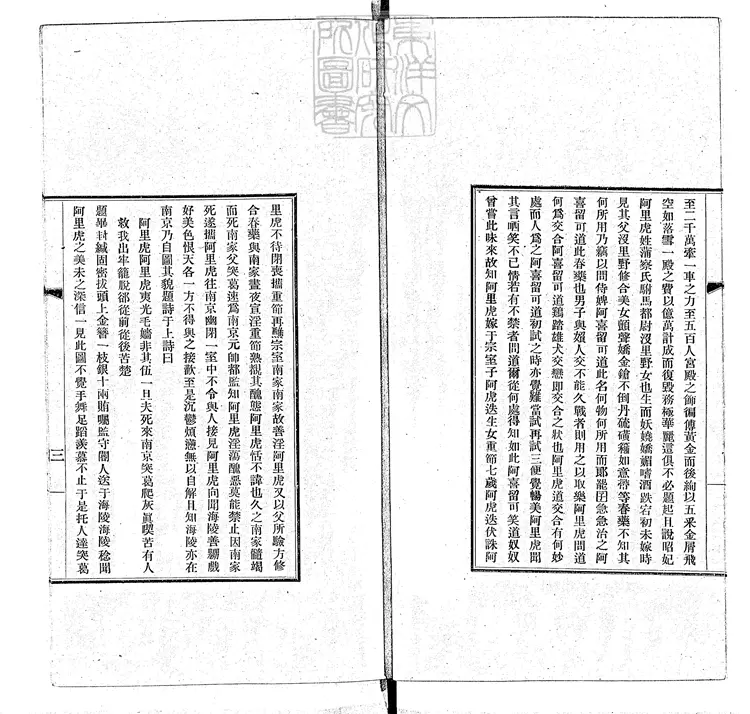 至二千萬牽一車之力至五百人宮殿之飾徧傅黃金而後絢以五采金屑飛
空如落雪一殿之費以億萬計成而復毀務極華麗這俱不必題起且說昭妃
阿里虎姓蒲察氏駙馬都尉沒里野女也生而妖嬈嬌媚嗜酒跌宕初未嫁時
見其父沒里野修合美女顫聲嬌金鎗不倒丹硫磺箍如意帶等春藥不知其
何所用乃竊以問侍婢阿喜留可道此名何物何所用而郎罷囝急急治之阿
喜留可道此春藥也男子與婦人交不能久戰者則用之以取樂阿里虎問道
何爲交合阿喜留可道鷄踏雄犬交戀即交合之狀也阿里虎道交合有何妙
處而人爲之阿喜留可道初試之時亦覺難當試再試三便覺暢美阿里虎聞
其言哂笑不已情若有不禁者問道爾從何處得知如此阿喜留可笑道奴奴
曾嘗此味來故知阿里虎嫁于宗室子阿虎迭生女重節七歲阿虎迭伏誅阿
里虎不待閉喪攜重節再醮宗室南家南家故善淫阿里虎又以父所驗方修
合春藥與南家晝夜宣淫重節熟覩其醜態阿里虎恬不諱也久之南家髓竭
而死南家父突葛速爲南京元帥都監知阿里虎淫蕩醜惡莫能禁止因南家
死遂攜阿里虎往南京幽閉一室中不令與人接見阿里虎向聞海陵善嬲戲
好美色恨天各一方不得與之接歡至是沉鬱煩懣無以自解且知海陵亦在
南京乃自圖其貌題詩于上詩曰
阿里虎阿里虎夷光毛嬙非其伍一旦夫死來南京突葛爬灰眞喫苦有人
救我出牢籠脫卻從前從後苦楚
題畢封緘固密拔頭上金簪一枝銀十兩賄囑監守閽人送于海陵海陵稔聞
阿里虎之美未之深信一見此圖不覺手舞足蹈羨慕不止于是托人達突葛
三
東洋文
化研究
所圖書